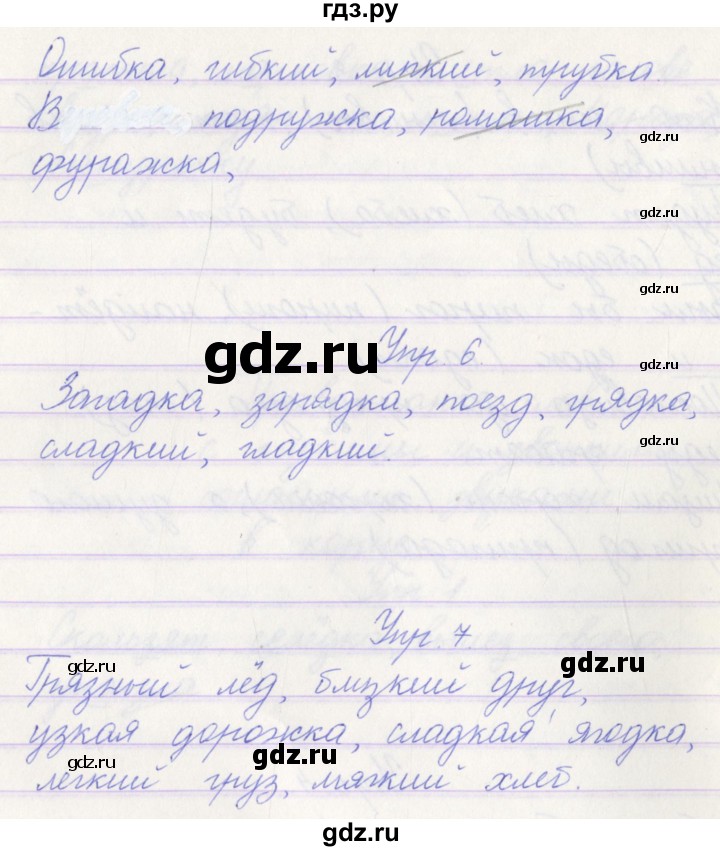 гдз.ру
Ошибка, гибкий, липкий, трубка.
В подружка, ромашка,
gdz.ru
фуражка,
gdz.ru
gdz.ru
gdz.ru
Упр. 6.
gdz.ru
Загадка, зарядка, поезд, грядка,
gdz.ru
сладкий, гладкий.
gdz.ru
Упр. 7.
gdz.ru
gdz.ru
Грязный лёд, близкий друг,
узкая дорожка, сладкая ягодка,
gdz.ru
gdz.ru
лёгкий груз, мягкий хлеб.
gdz.ru